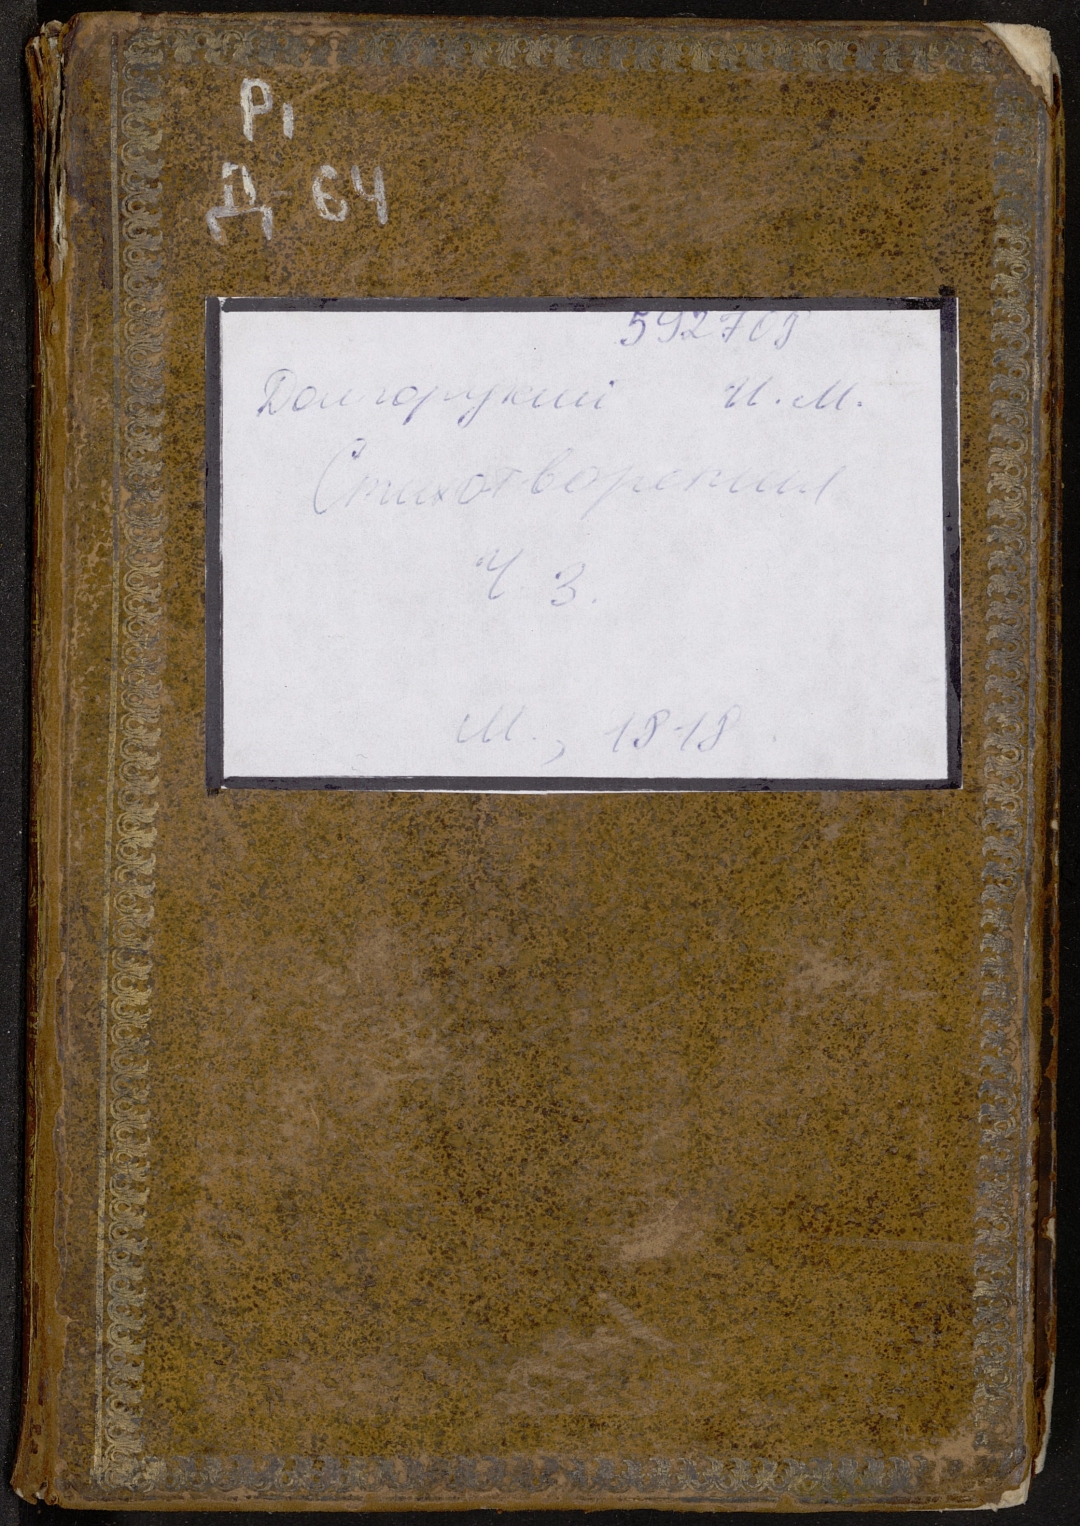 Р1
Д 64
592708
Долгорукий И. М.
Стихотворения
Ч. 3.
М., 1818